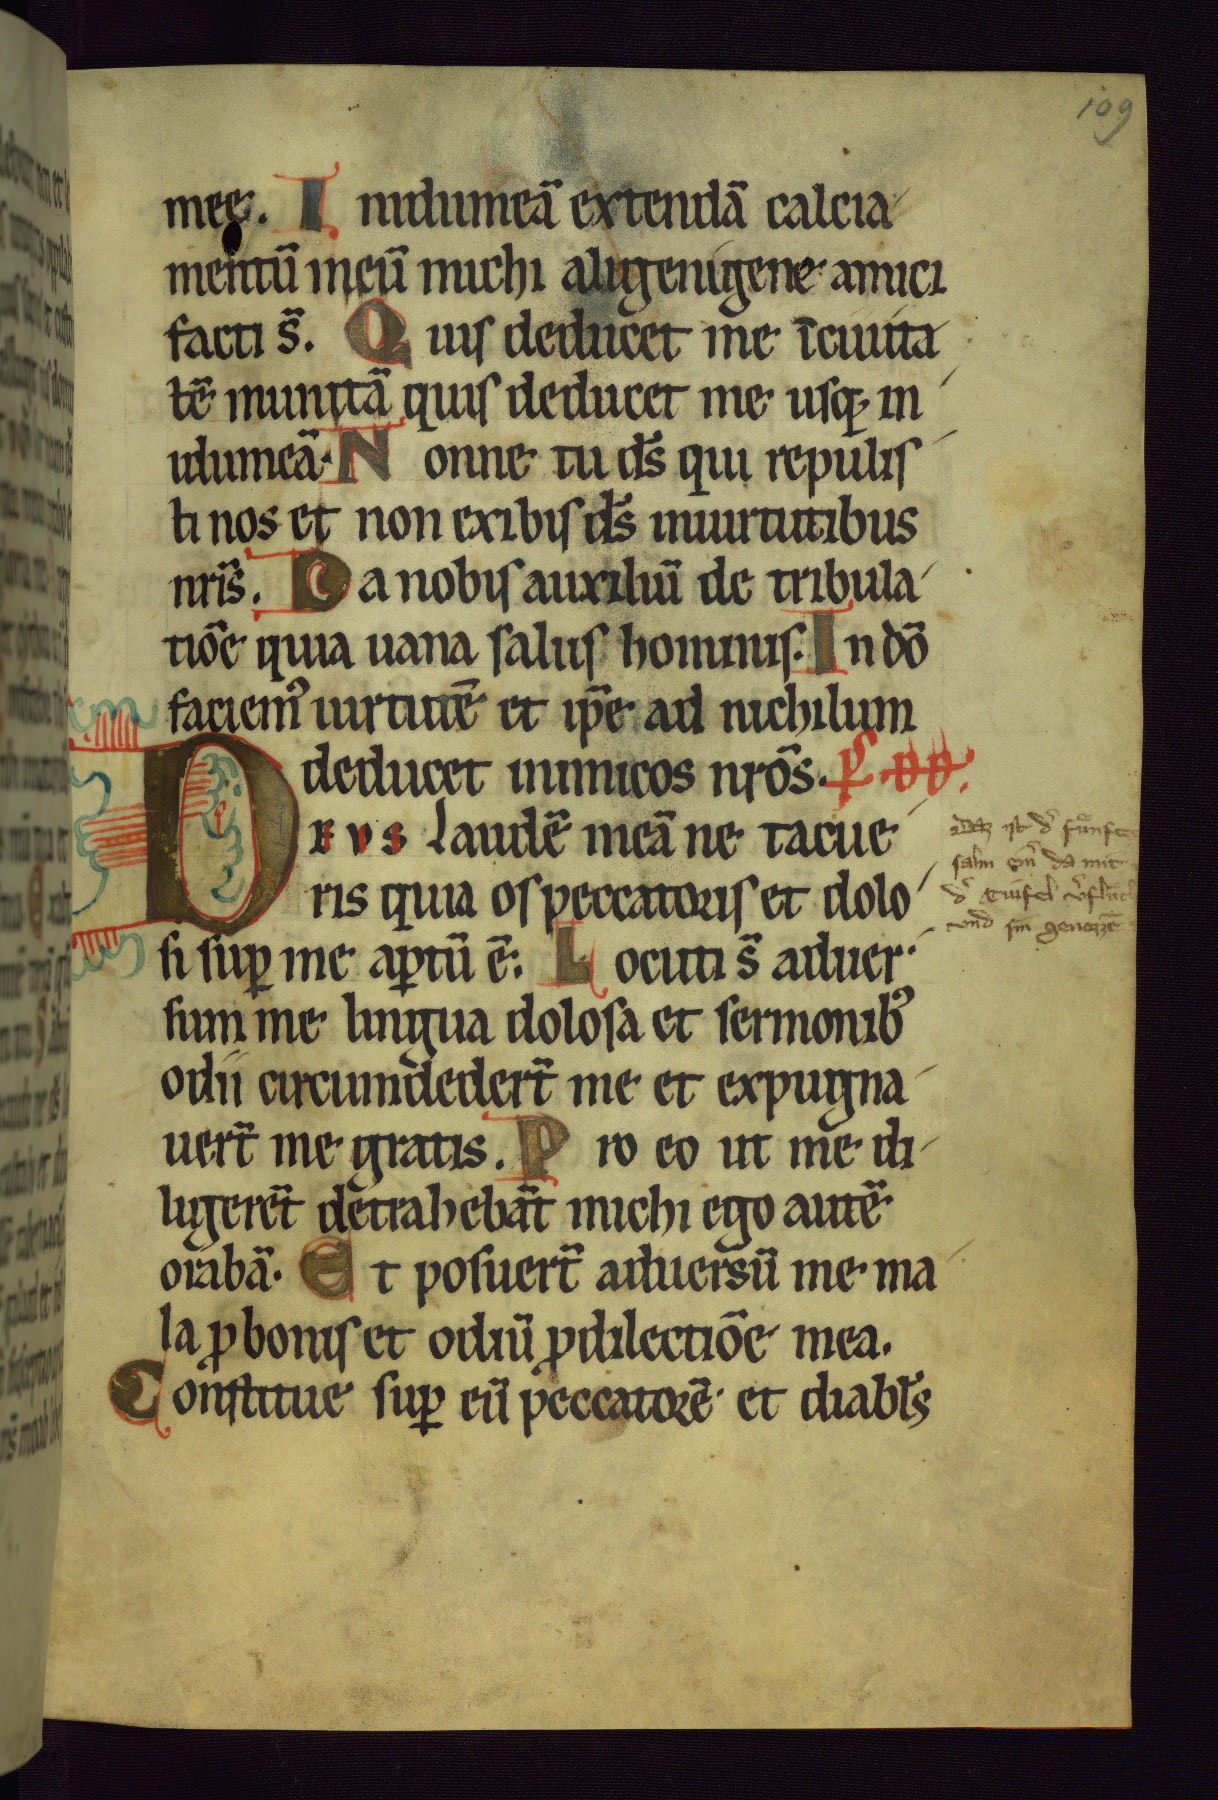 109
mee. I nidumeā extendā calcia
mentū meū michi aligenigene amici
facti s̄. Q uis deducet me īcuuita
tē munitā quis deducet me usq; in
idumeā. N onne tu ds̄ qui repulis
ti nos et non exibis ds̄ inuirtutibus
nr̄is. D a nobis auxiliū de tribula
tiōe quia uana salus hominis. In dō
faciem⁹ uirtutē et ip̄e ad nichilum
deducet inimicos nrōs. ps̄ dd.
D E V S laudē meā ne tacue
ris quia os peccatoris et dolo
si suꝑ me aꝑtū ē. L ocuti s̄ aduer
sum me lingua dolosa et sermonib⁹
odii circumdedert̄ me et expugna
uert̄ me gratis. P ro eo ut me di
ligerēt detrahebāt michi ego autē
orabā. E t posuert̄ aduersū me ma
la ꝓ bonis et odiū ꝓ dilectiōe mea.
Constitue suꝑ eū peccatorē et diabl̄s
salm da mit